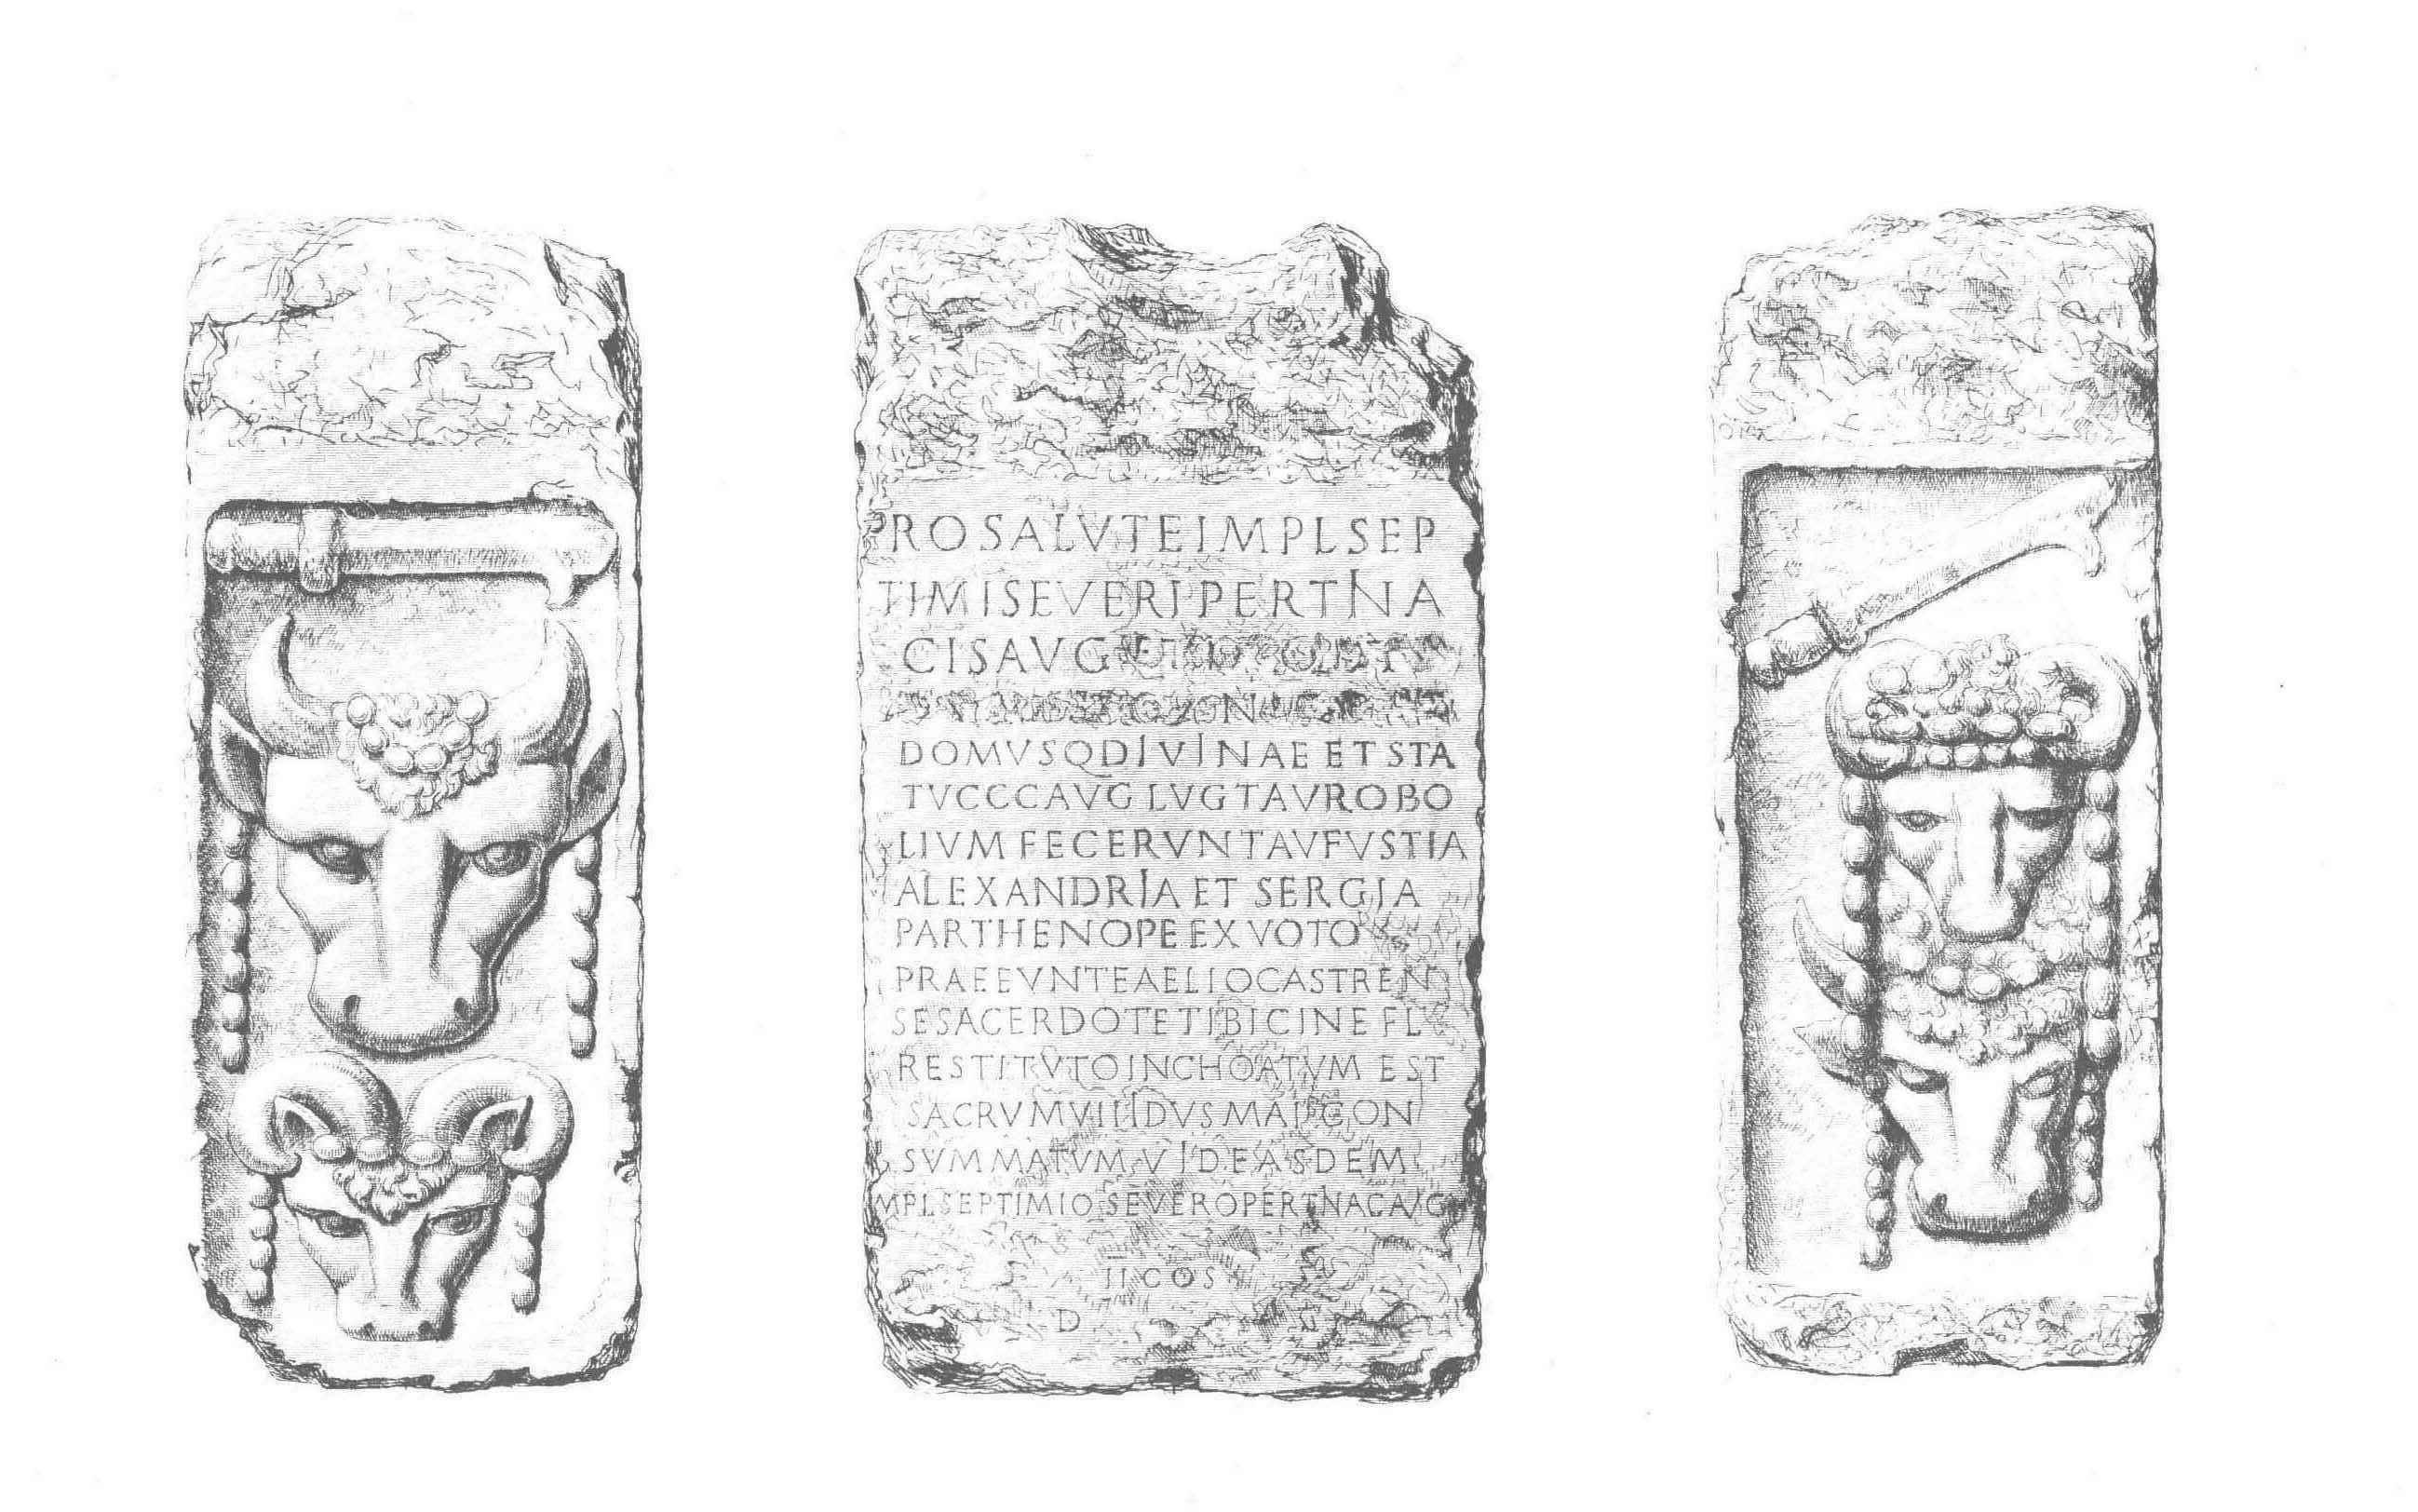 ROSALVTEIMPLSEP
TIMISEVERIPERTNA
CISAVG
DOMVSQDIVINAE ET STA
TVCCCAVGLVGTAVROBO
LIVM FECERVNTAVFVSTIA
ALEXANDRIA ET SERGIA
PARTHENOPE EX VOTO
PRAEEVNTEAELIOCASTREN
SESACERDOTETIBICINE FL
RESTITVTOINCHOATVM EST
SACRVMVIIIDVSMAISCON
SVMMATVM VIDEASDEM
MPLSEPTIMIOSEVEROPERTNACAVG
II COS
D